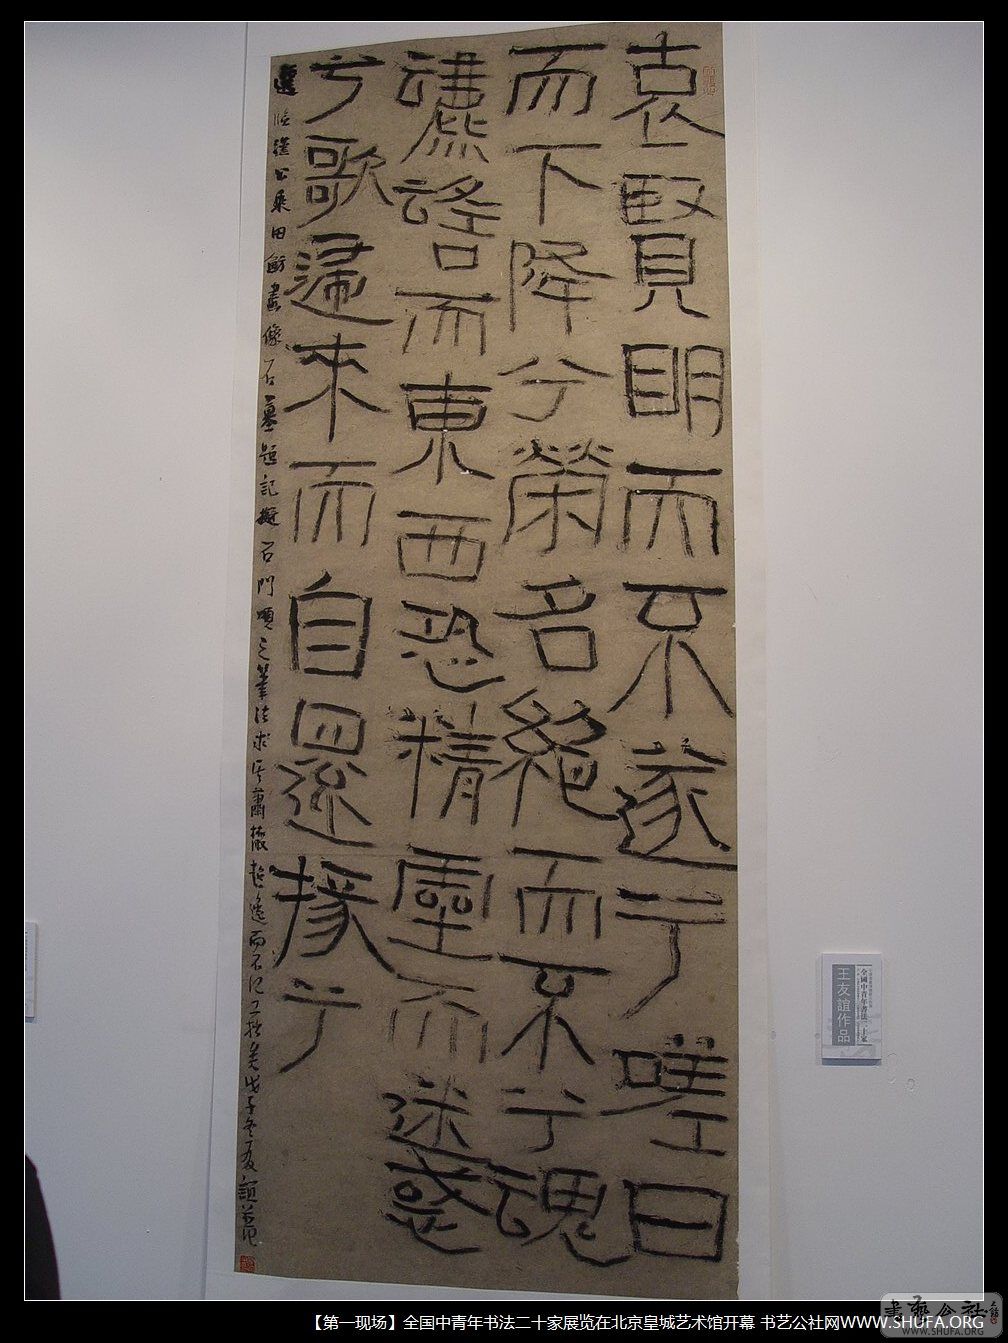 哀賢明而不遂兮嗟日
而下降兮榮名絶而不兮魂
而東西恐精靈而迷惑
兮歌歸來而自還掾兮
選臨漢公乘田魴畫像石墓題記擬石門頌之筆法求其蕭散超逸而不計工拙矣戊子冬友誼
全國中青年書法二十家
王友誼作品
【第一现场】全国中青年书法二十家展览在北京皇城艺术馆开幕 书艺公社网WWW.SHUFA.ORG
WWW.SHUFA.ORG